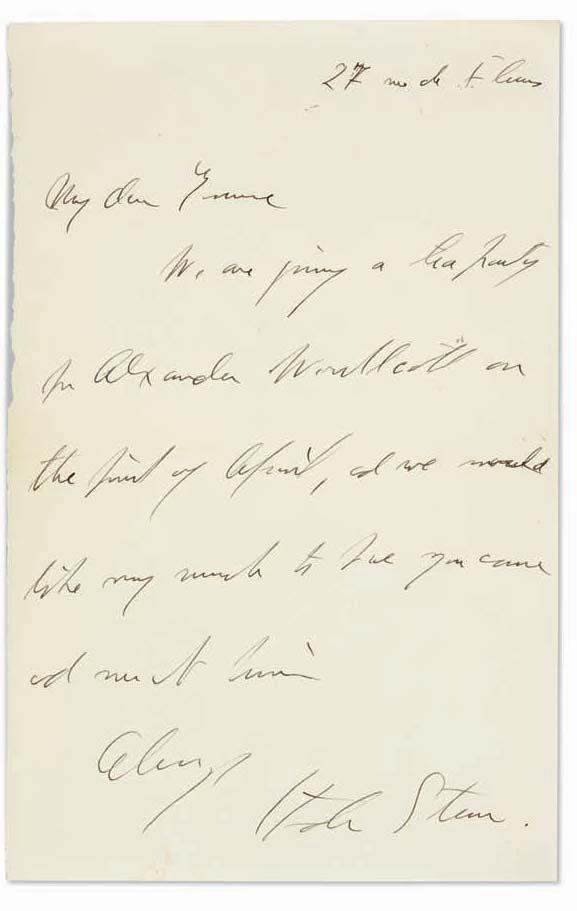 27 rue de Fleurus
My dear
We are giving a tea party
for Alexander Woollcott on
the first of April, and we would
like very much to have you come
and meet him
Always
Stein.